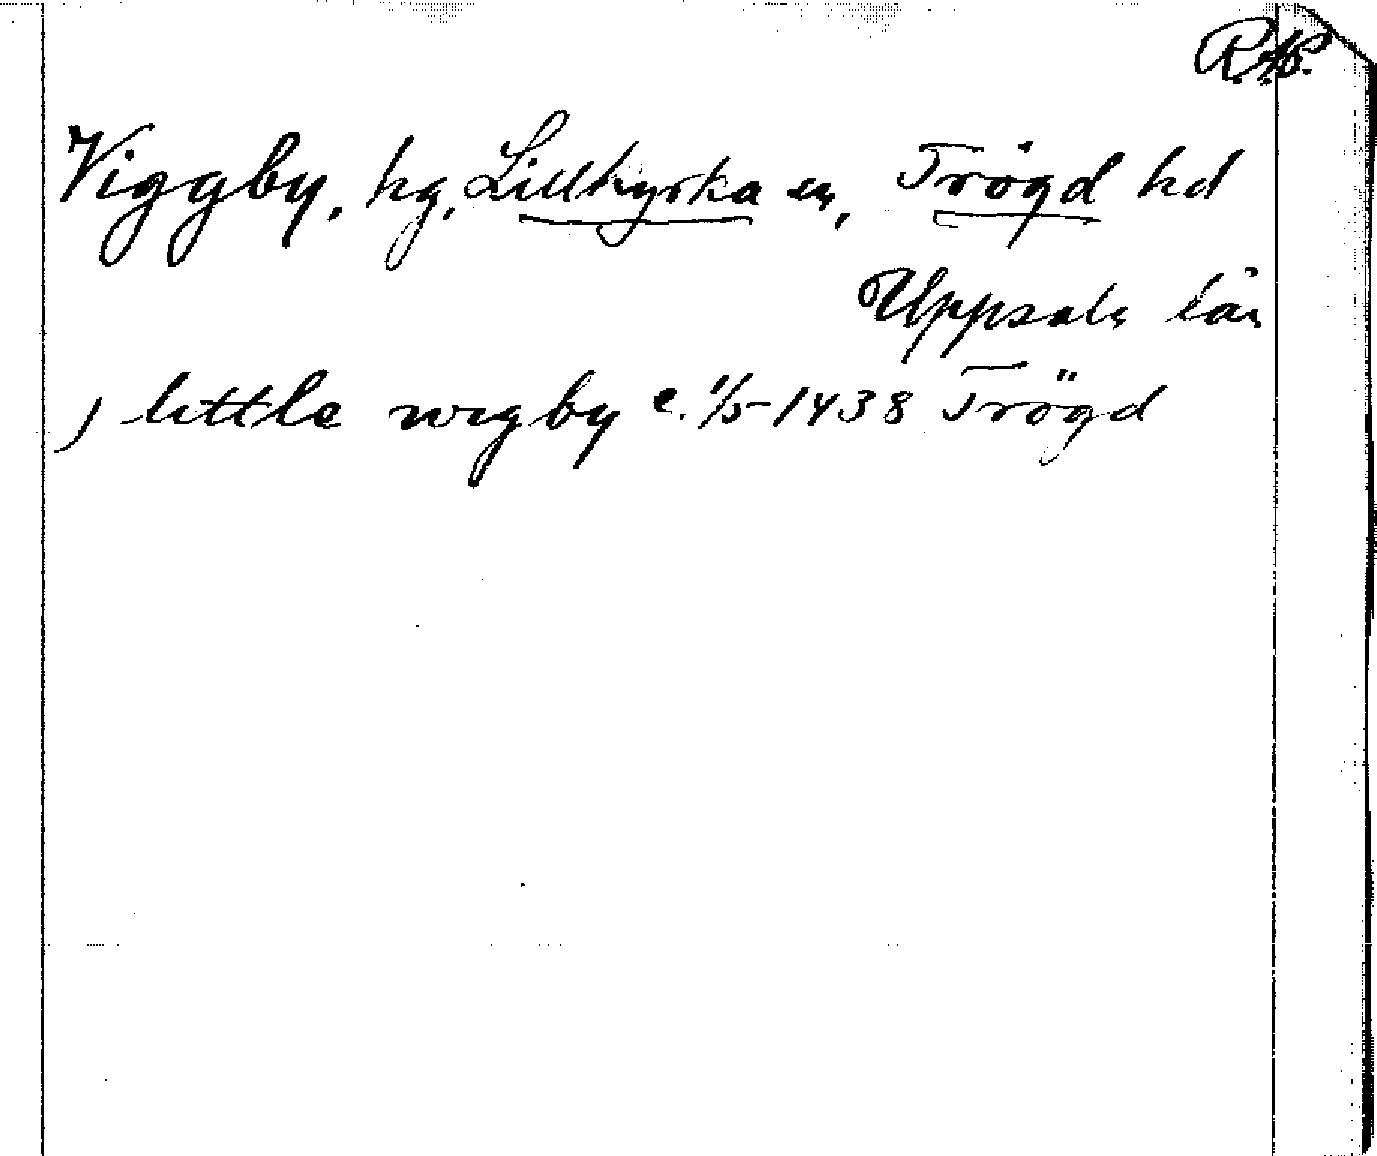 R.Ap.
Viggby, hg, Lillkyrka sn, Trögd hd
Uppsala län
j little wigby c. 1/5 1438 Trögd